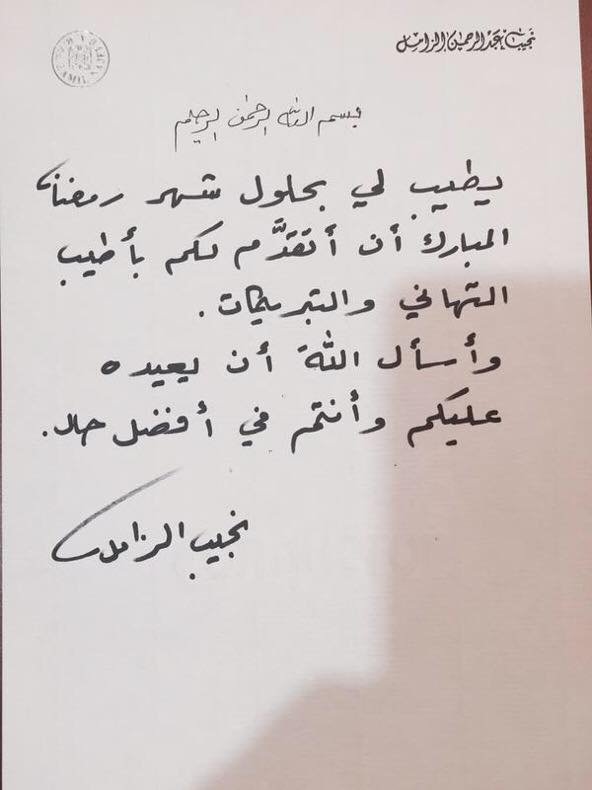 نجيب عبدالرحمن الزامل
بسم الله الرحمن الرحيم
يطيب لي بحلول شهر رمضان
المبارك أن أتقدَّم لكم بأطيب
التهاني والتبريكات.
وأسأل اللهَ أن يعيده
عليكم وأنتم في أفضل حال.
نجيب الزامل